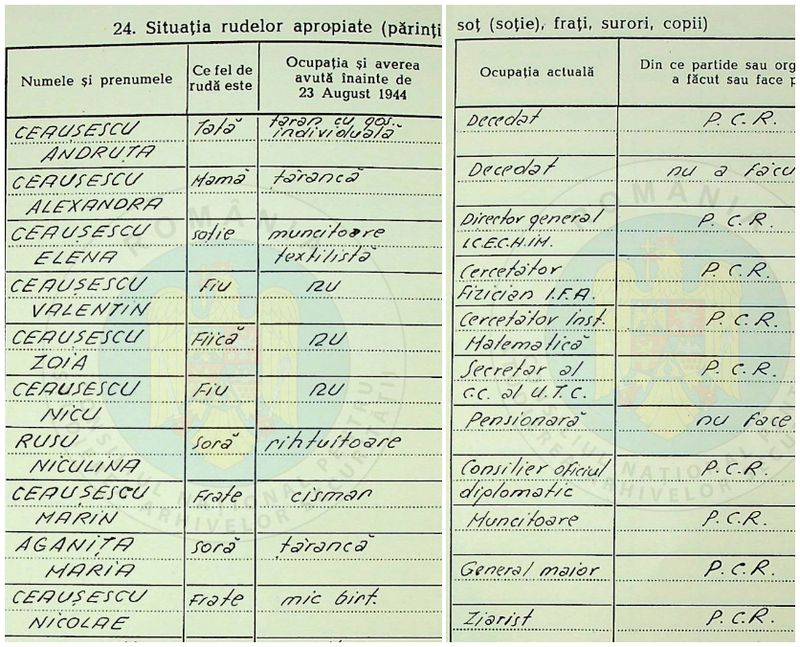 24. Situația rudelor apropiate (părinți
Numele și prenumele
Ce fel de
rudă este
Ocupația și averea
avută înainte de
23 August 1944
CEAUȘESCU Tată țăran cu gos.
individuală
ANDRUȚA
CEAUȘESCU Mamă țărancă
ALEXANDRA
CEAUȘESCU soție muncitoare
ELENA textilistă
CEAUȘESCU Fiu nu
VALENTIN
CEAUȘESCU Fiică nu
ZOIA
CEAUȘESCU Fiu nu
NICU
RUSU soră rihtuitoare
NICULINA
CEAUȘESCU Frate cismar
MARIN
AGANIȚA soră țărancă
MARIA
CEAUȘESCU Frate mic birt.
NICOLAE
ROMÂNIA
CONSILIUL NAȚIONAL PENTRU
ARHIVELOR SECURITĂȚII
soț (soție), frați, surori, copii)
Ocupația actuală
Din ce partide sau org
a făcut sau face p
Decedat P.C.R.
Decedat nu a făcu
Director general P.C.R.
I.C.E.C.H.I.M.
Cercetător P.C.R.
Fizician I.F.A.
Cercetător Inst. P.C.R.
Matematică
Secretar al P.C.R.
C.C. al U.T.C.
Pensionară nu face
Consilier oficiul P.C.R.
diplomatic
Muncitoare P.C.R.
General maior P.C.R.
Ziarist P.C.R.
ROMÂNIA
NAȚIONAL